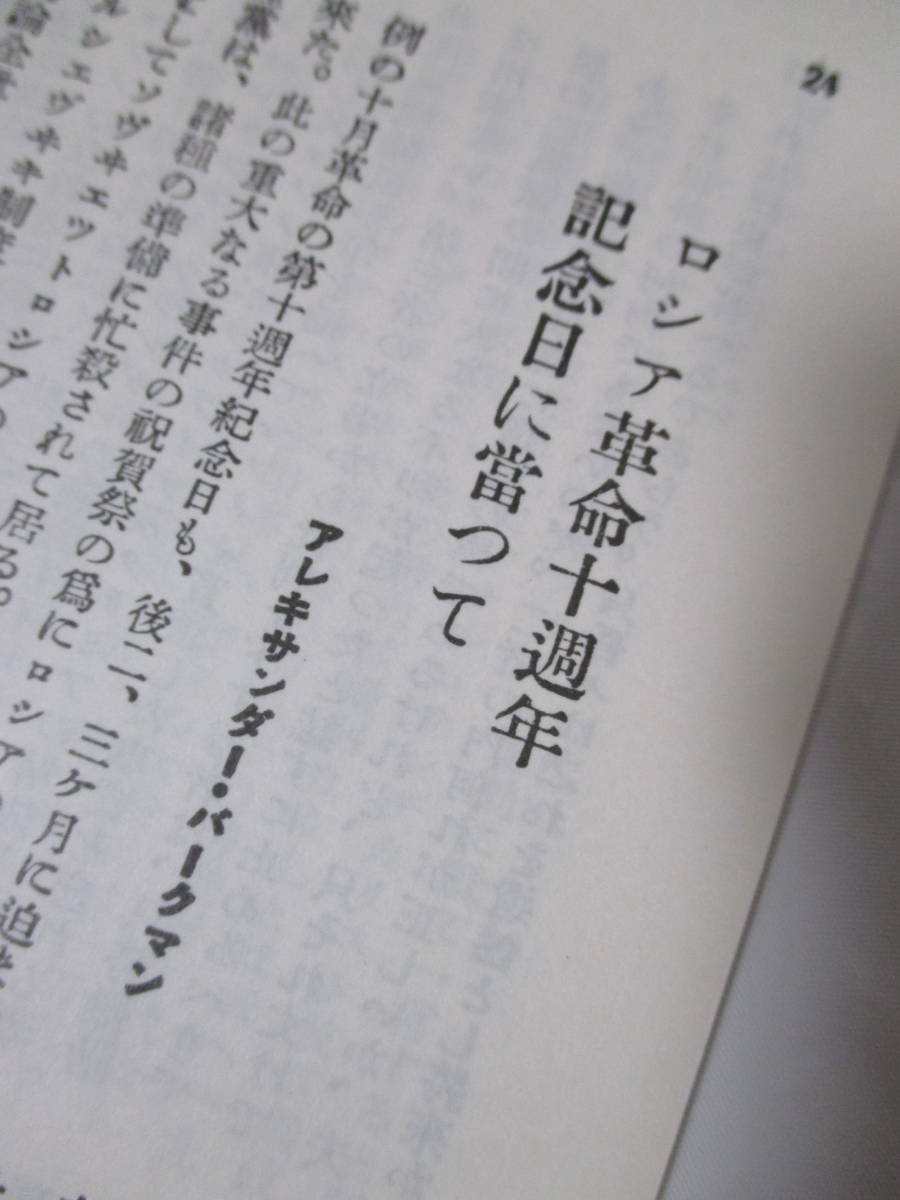 24
ロシア革命十週年
記念日に當つて
アレキサンダー・バークマン
例の十月革命の第十週年紀念日も、後二、三ケ月に迫
來た。此の重大なる事件の祝賀祭の爲にロシアの
黨は、諸種の準備に忙殺されて居る。
してソヴヰエットロシアの
ルシエヴヰキ制度
論全世